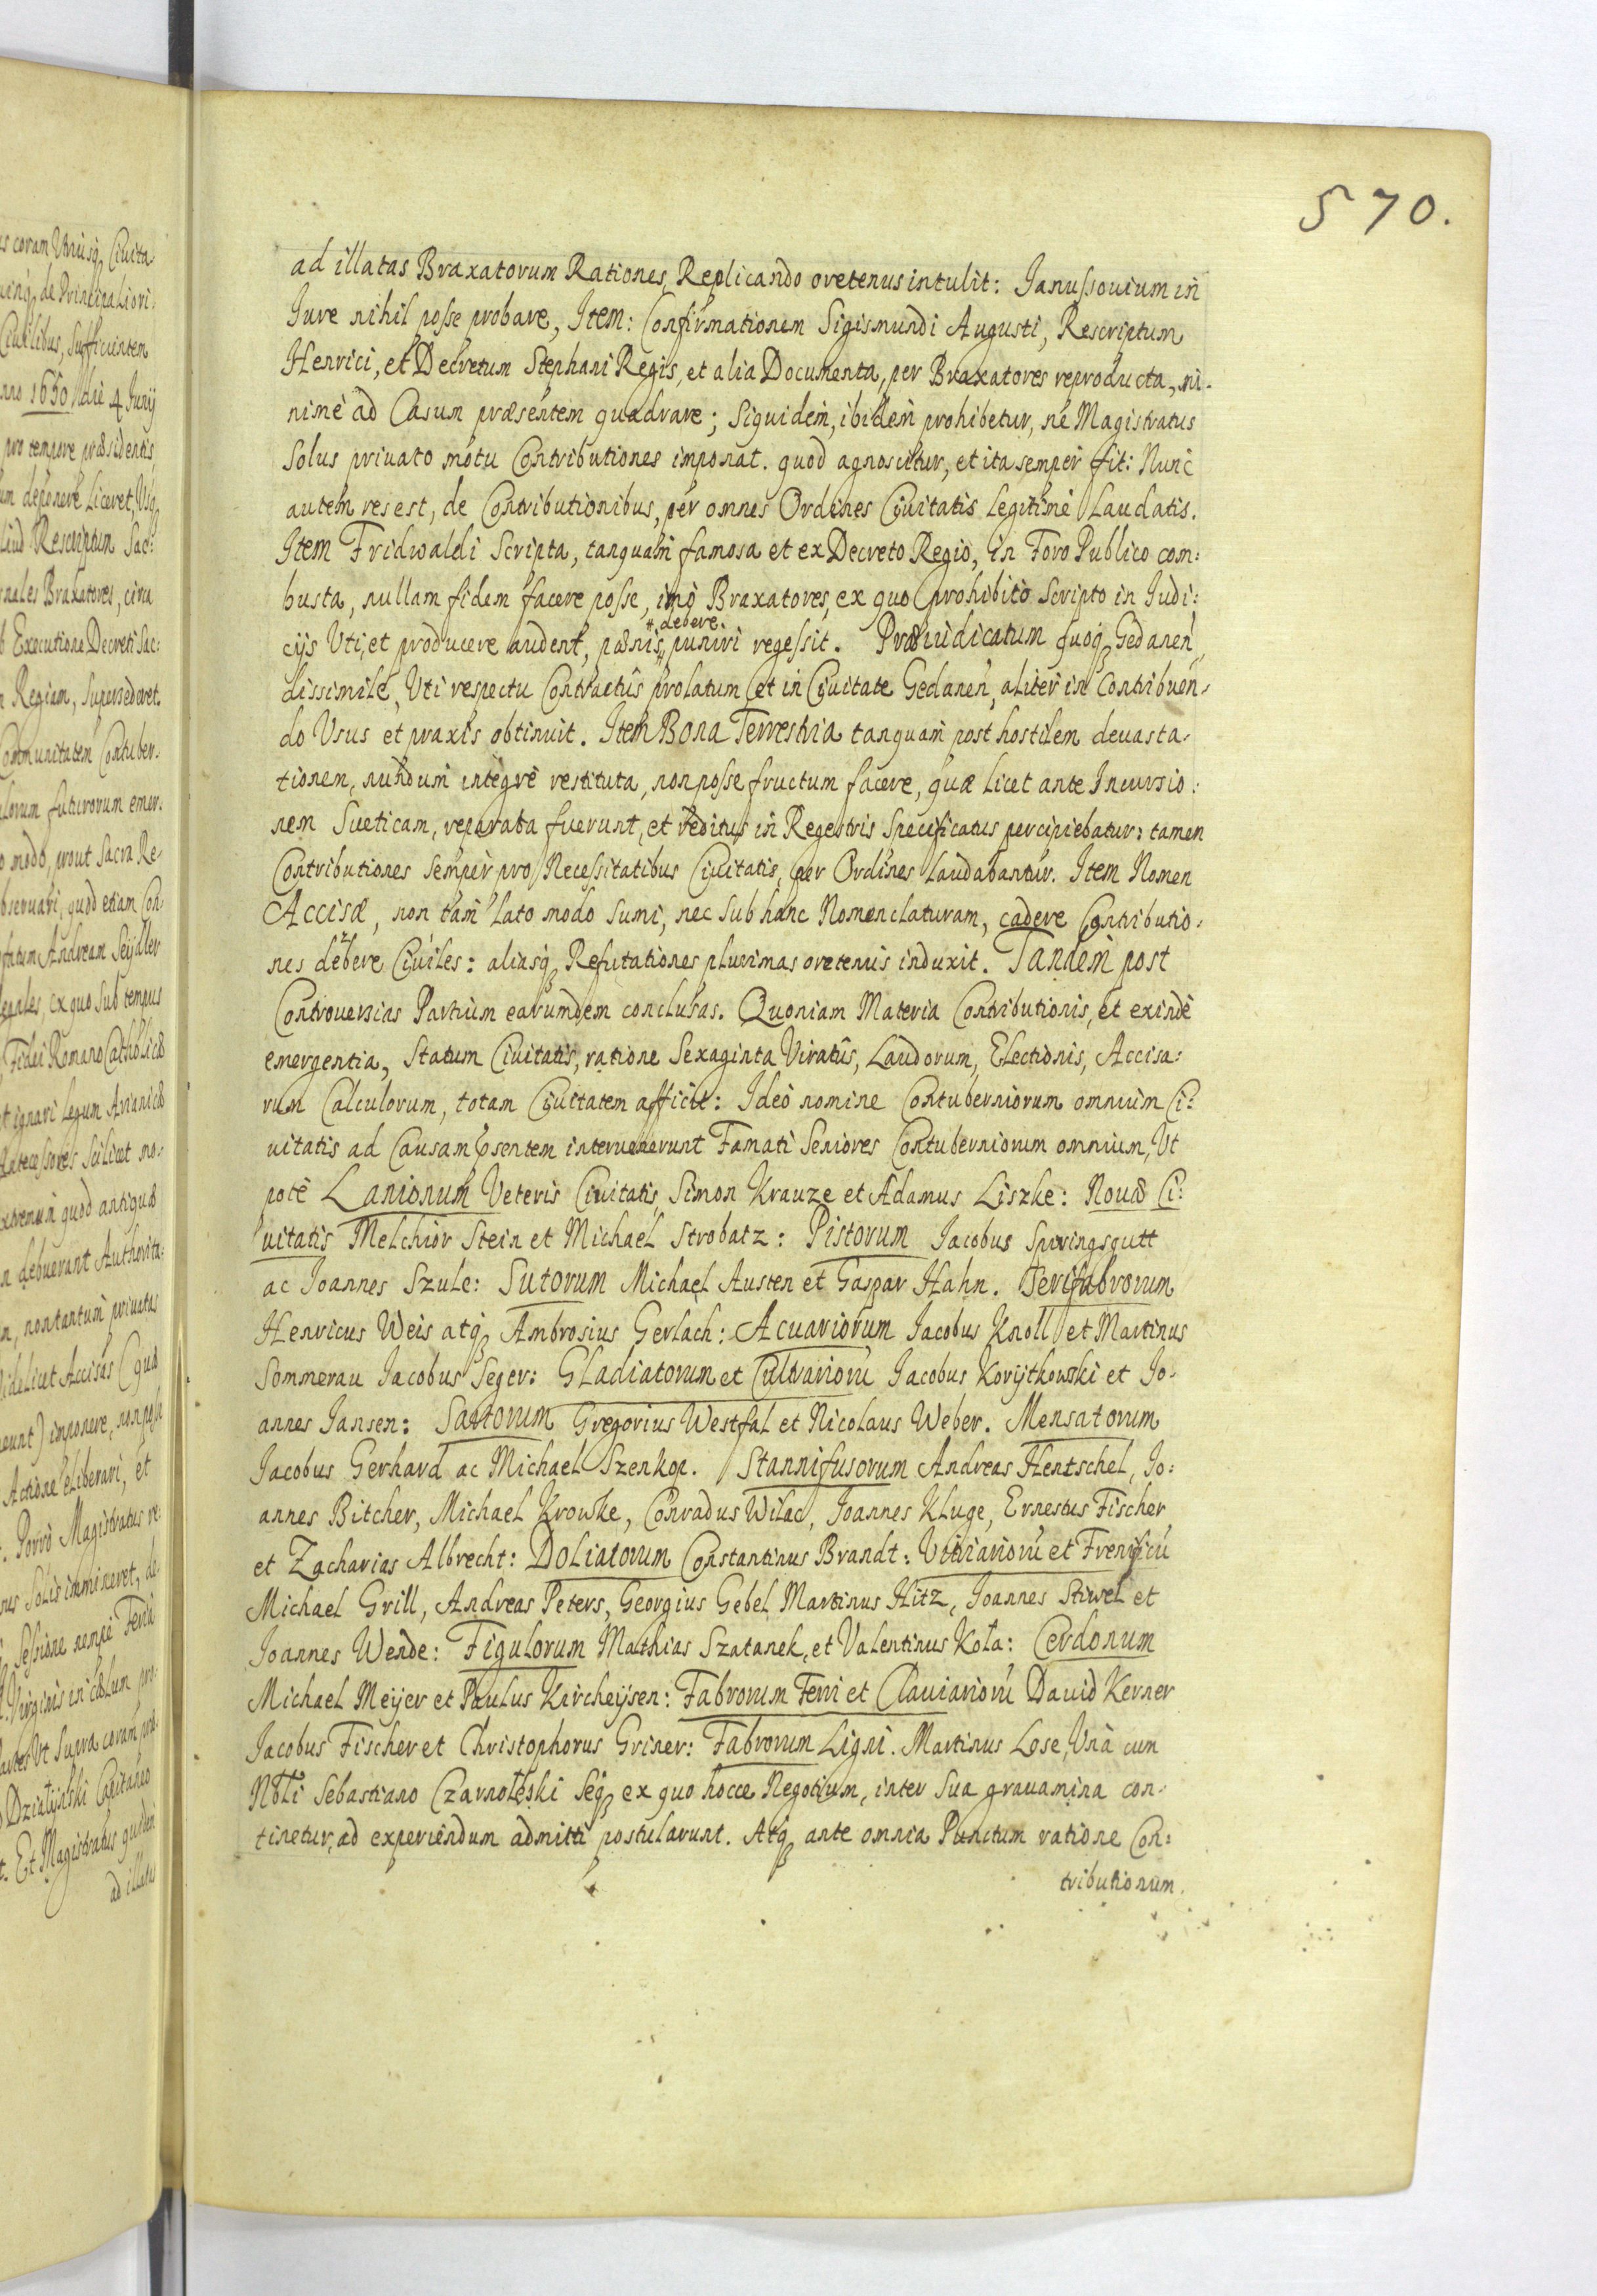 570.
ad illatas Braxatorum Rationes, Replicando oretenus intulit: Janussouium in
Jure nihil posse probare, Item: Confirmationem Sigismundi Augusti, Rescriptum
Henrici, et Decretum Stephani Regis, et alia Documenta, per Braxatores reproducta, mi-
nimè ad Casum præsentem quadrare; Siquidem, ibidem prohibetur, ne Magistratus
Solus priuato motu Contributiones imponat. quod agnoscitur, et ita semper fit: Nunc
autem res est, de Contributionibus, per omnes Ordines Ciuitatis Legitimè Laudatis.
Item Fridwaldi Scripta, tanquam famosa et ex Decreto Regio, in Foro Publico com:
busta, nullam fidem facere posse, imò Braxatores, ex quo prohibito Scripto in Judi:
debere
cijs Uti, et producere audent, pœnis puniri regessit. Præiudicatum quoq Gedanen
dissimile, Uti respectu Contractûs prolatum et in Ciuitate Gedanen, aliter in Contribuen-
do Usus et praxis obtinuit. Item Bona Terrestria tanquam post hostilem deuasta-
tionem, nundum integrè restituta, non posse fructum facere, quæ licet ante Incursio:
nem Sueticam, reparata fuerunt, et reditus in Regestris Specificatus percipiebatur: tamen
Contributiones Semper pro Necessitatibus Ciuitatis, per Ordines Laudabantur. Item Nomen
Accisæ, non tam Lato modo Sumi, nec Sub hanc Nomenclaturam, cadere Contributio-
nes debere Ciuiles: aliasq Refutationes plurimas oretenus induxit. Tandem post
Controuersias Partium earumdem conclusas. Quoniam Materia Contributionis, et exinde
emergentia, Statum Ciuitatis, ratione Sexaginta Viratûs, Laudorum, Electionis, Accisa:
rum Calculorum, totam Ciuitatem afficit: Ideò nomine Contuberniorum omnium Ci:
uitatis ad Causam psentem interuenerunt Famati Seniores Contuberniorum omnium, Ut
potè Lanionum Veteris Ciuitatis, Simon Krauze et Adamus Liszke: Nouæ Ci:
uitatis Melchior Stein et Michael Strobatz: Pistorum Jacobus Springsgutt
ac Joannes Szule: Sutorum Michael Austen et Gaspar Hahn.
Henricus Weis atq Ambrosius Gerlach: Acuariorum Jacobus Knoll et Martinus
Sommerau Jacobus Seger: Gladiatorum et Cultrariorũ Jacobus Korijtkowski et Jo-
annes Jansen: Sartorum Gregorius Westfal et Nicolaus Weber. Mensatorum
Jacobus Gerhard ac Michael Szenkop. Stannifusorum Andreas Hentschel, Jo:
annes Bitcher, Michael Krowke, Conradus Wilac, Joannes Kluge, Ernestus Fischer
et Zacharias Albrecht: Doliatorum Constantinus Brandt: Vitriariorũ et Frenificũ
Michael Grill, Andreas Peters, Georgius Gebel Martinus Hitz, Joannes Stiwel et
Joannes Wende: Figulorum Mathias Szatanek, et Valentinus Kota: Cerdonum
Michael Meijer et Paulus Kircheijsen: Fabrorum Ferri et Clauiariorũ Dauid Kerner
Jacobus Fischer et Christophorus Griner: Fabrorum Ligni. Martinus Lose, Unà cum
Nbli Sebastiano Czarnoleski Seq ex quo hocce Negotium, inter Sua grauamina con-
tinetur, ad experiendum admitti postularunt. Atq ante omnia Punctum ratione Con:
tributionum.